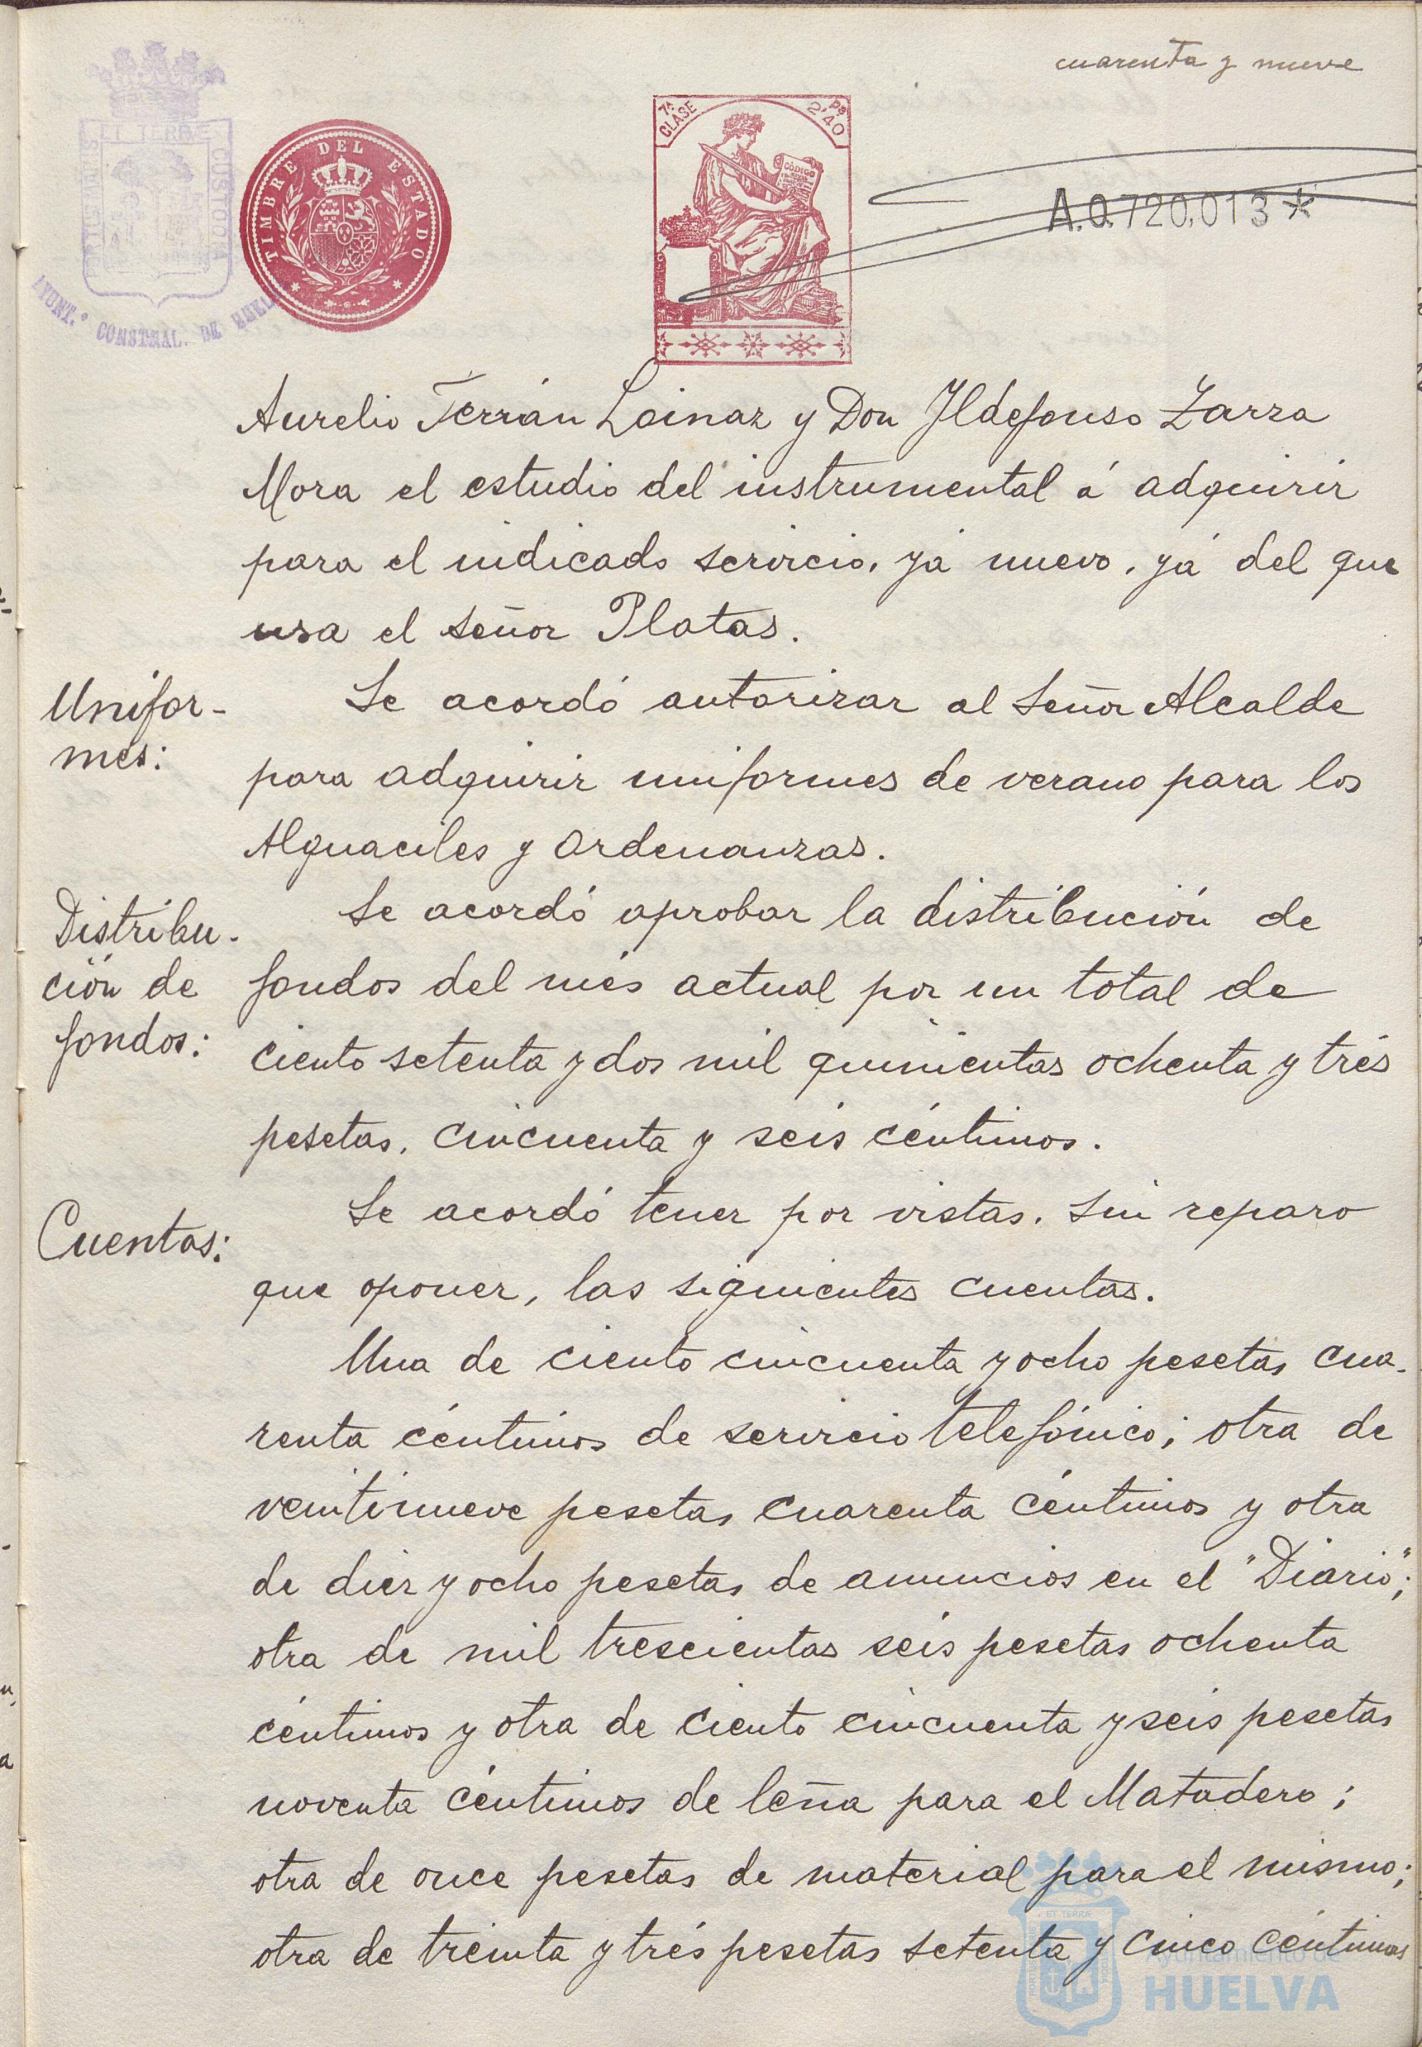 cuarenta y nueve
TIMBRE DEL ESTADO
7ª CLASE
Ps 2'40
CÓDIGO
A.0.720,013*
ET TERRÆ CUSTODIA
AYUNT.º CONSTNAL. DE HUEL
Aurelio Terrán Loinaz y Don Ildefonso Zarza
Mora el estudio del instrumental á adquirir
para el indicado servicio, yá nuevo, yá del que
usa el señor Platas.
Unifor-
mes:
Se acordó autorizar al Señor Alcalde
para adquirir uniformes de verano para los
Alguaciles y Ordenanzas.
Distribu-
ción de
fondos:
Se acordó aprobar la distribución de
fondos del més actual por un total de
ciento setenta y dos mil quinientas ochenta y trés
pesetas, cincuenta y seis céntimos.
Cuentas:
Se acordó tener por vistas, sin reparo
que oponer, las siguientes cuentas.
Una de ciento cincuenta y ocho pesetas cua-
renta céntimos de servicio telefónico; otra de
veintinueve pesetas cuarenta céntimos y otra
de diez y ocho pesetas de anuncios en el "Diario";
otra de mil trescientas seis pesetas ochenta
céntimos y otra de ciento cincuenta y seis pesetas
noventa céntimos de leña para el Matadero;
otra de once pesetas de material para el mismo;
otra de treinta y trés pesetas setenta y cinco céntimos
Ayuntamiento de
HUELVA